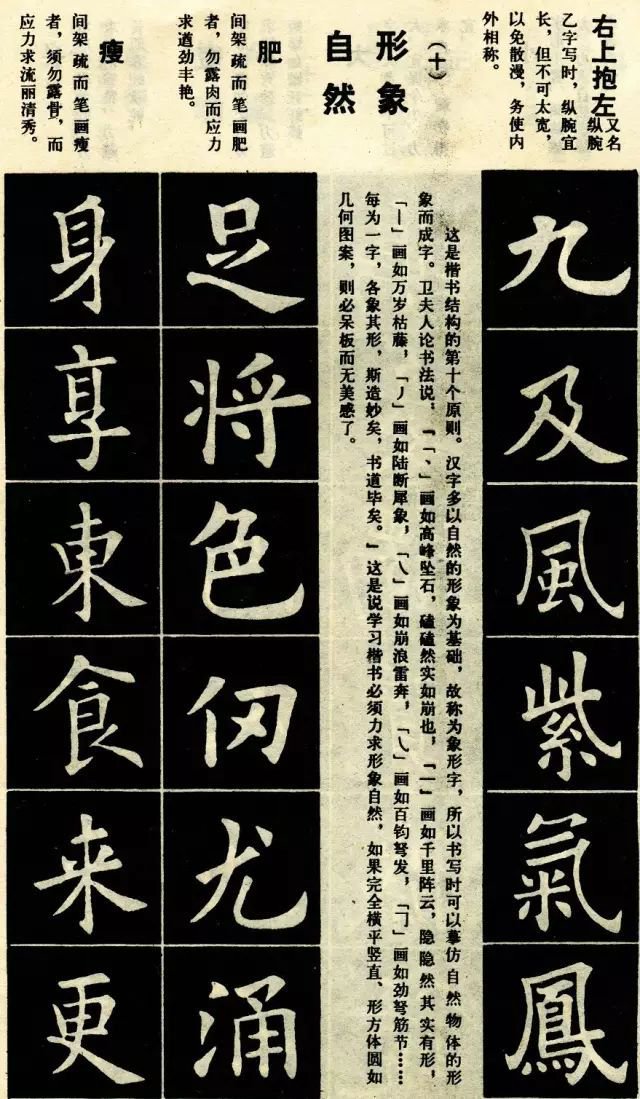 右上抱左
又名纵腕
乙字写时，纵腕宜
长，但不可太宽，
以免散漫，务使内
外相称。
九
及
風
紫
氣
鳳
（十）
形象
自然
这是楷书结构的第十个原则。汉字多以自然的形象为基础，故称为象形字，所以书写时可以摹仿自然物体的形
象而成字。卫夫人论书法说，『「、」画如高峰坠石，磕磕然实如崩也，「一」画如千里阵云，隐隐然其实有形，
「丨」画如万岁枯藤，「丿」画如陆断犀象，「乀」画如崩浪雷奔，「㇂」画如百钧弩发，「㇆」画如劲弩筋节……
每为一字，各象其形，斯造妙矣，书道毕矣。』这是说学习楷书必须力求形象自然，如果完全横平竖直、形方体圆如
几何图案，则必呆板而无美感了。
肥
间架疏而笔画肥
者，勿露肉而应力
求遒劲丰艳。
足
将
色
仭
尤
涌
瘦
间架疏而笔画瘦
者，须勿露骨，而
应力求流丽清秀。
身
享
東
食
来
更